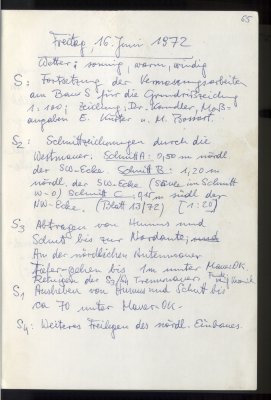 65
Freitag, 16. Juni 1972
Wetter: sonnig, warm, windig
S: Fortsetzung der Vermessungsarbeiten
am Bau S für die Grundrißzeichnung
1:100; Zeichng. Dr. Kandler, Maß-
angaben E. Küster u. M. Bossert.
S2: Schnittzeichnungen durch die
Westmauer. Schnitt A: 0,50 m nördl
der SW-Ecke. Schnitt B: 1,20 m
nördl. der SW-Ecke (Säule im Schnitt
W-O) Schnitt C m südl der
NW-Ecke. (Blatt 13/72) (1:20)
S3 Abtragen von Humus und
Schutt bis zur Nordkante,
An der nördlichen Mauer
bis 1m unter MauerOK
der S2/S3 Trennmauer.
S1 Ausheben von Humus und Schutt bis
ca 70 unter Mauer-OK.
S4: Weiteres Freilegen des nördl. Einbaues